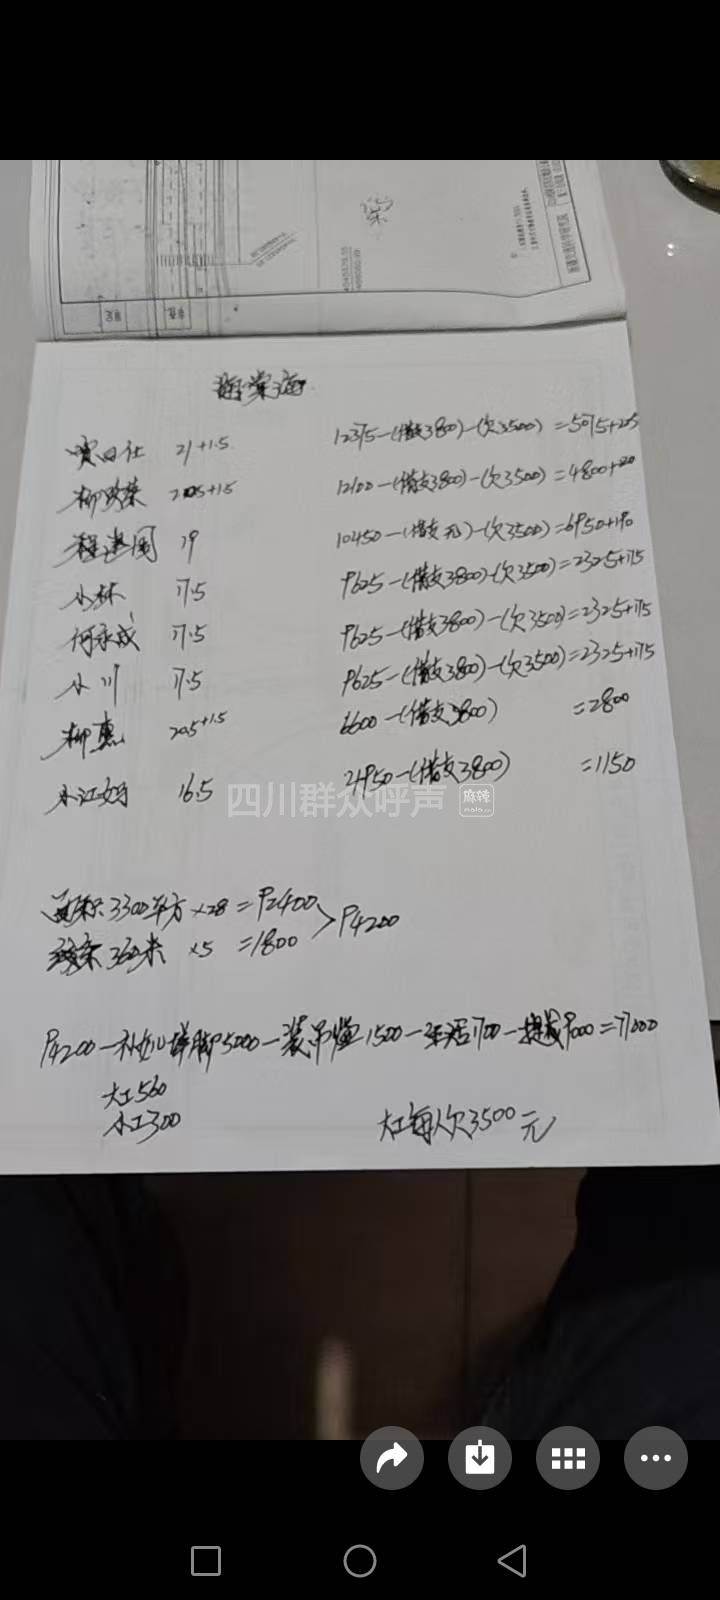 海棠湾
贾四社 21+1.5 12375-(借支3800)-(欠3500)=5075+205
柳政荣 20.5+1.5 12100-(借支3800)-(欠3500)=4800+20
程建国 19 10450-(借支无)-(欠3500)=6950+190
小林 17.5 9625-(借支3800)-(欠3500)=2325+175
何永成 17.5 9625-(借支3800)-(欠3500)=2325+175
小川 17.5 9625-(借支3800)-(欠3500)=2325+175
柳惠 20.5+1.5 6600-(借支3800) =2800
小江 16.5 4950-(借支3800) =1150
四川群众呼声 麻辣
面积3300平方×28=92400
线条360米×5=1800 >94200
94200-补 脚5000-装吊篮1500-生活1700- 9000=77000
大工560
小工300
大工每人欠3500元